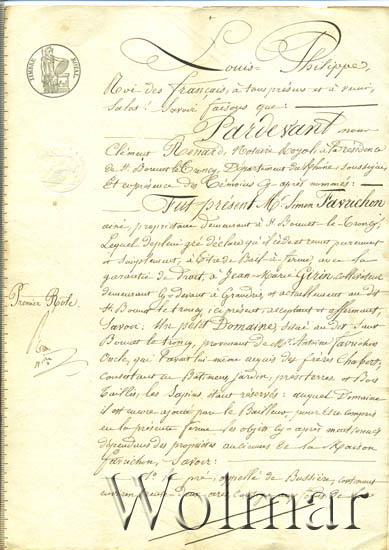 TIMBRE ROYAL
Louis Philippe,
Roi des français, à tous présens et à venir,
Salut! Savoir faisons que:
Pardevant nous
Clément Renard, Notaire Royal, à la résidence
de St Bonnet le Troncy, Département du Rhône, soussigné,
Et en présence des témoins ci-après nommés:
Fut présent Mr Simon Favrichon
aîné, propriétaire demeurant à St Bonnet-le-Troncy,
Lequel de plein gré déclare qu'il cède et remet purement
et simplement, à titre de Bail à ferme, avec la
garantie de Droit, à Jean-Marie Gerin cultivateur
demeurant ci-devant à Grandris et actuellement au dit
St Bonnet le troncy, ici présent, acceptant et affermant,
Savoir: Un petit Domaine, situé au dit Saint
Bonnet le troncy, provenant de Mr Antoine Favrichon
oncle, qui l'avait lui même acquis des frères
Consistant en Bâtimens, jardin, prés, terres et Bois
Taillis, les Sapins étant réservés: auquel Domaine
il est encore ajouté par le Bailleur, pour être compris
en la présente ferme les objets ci-après mentionnés
dépendans des propriétés anciennes de la Maison
Favrichon, Savoir:
1o Un pré, appellé de Bussière, contenant
Premier Rôle
Wolmar